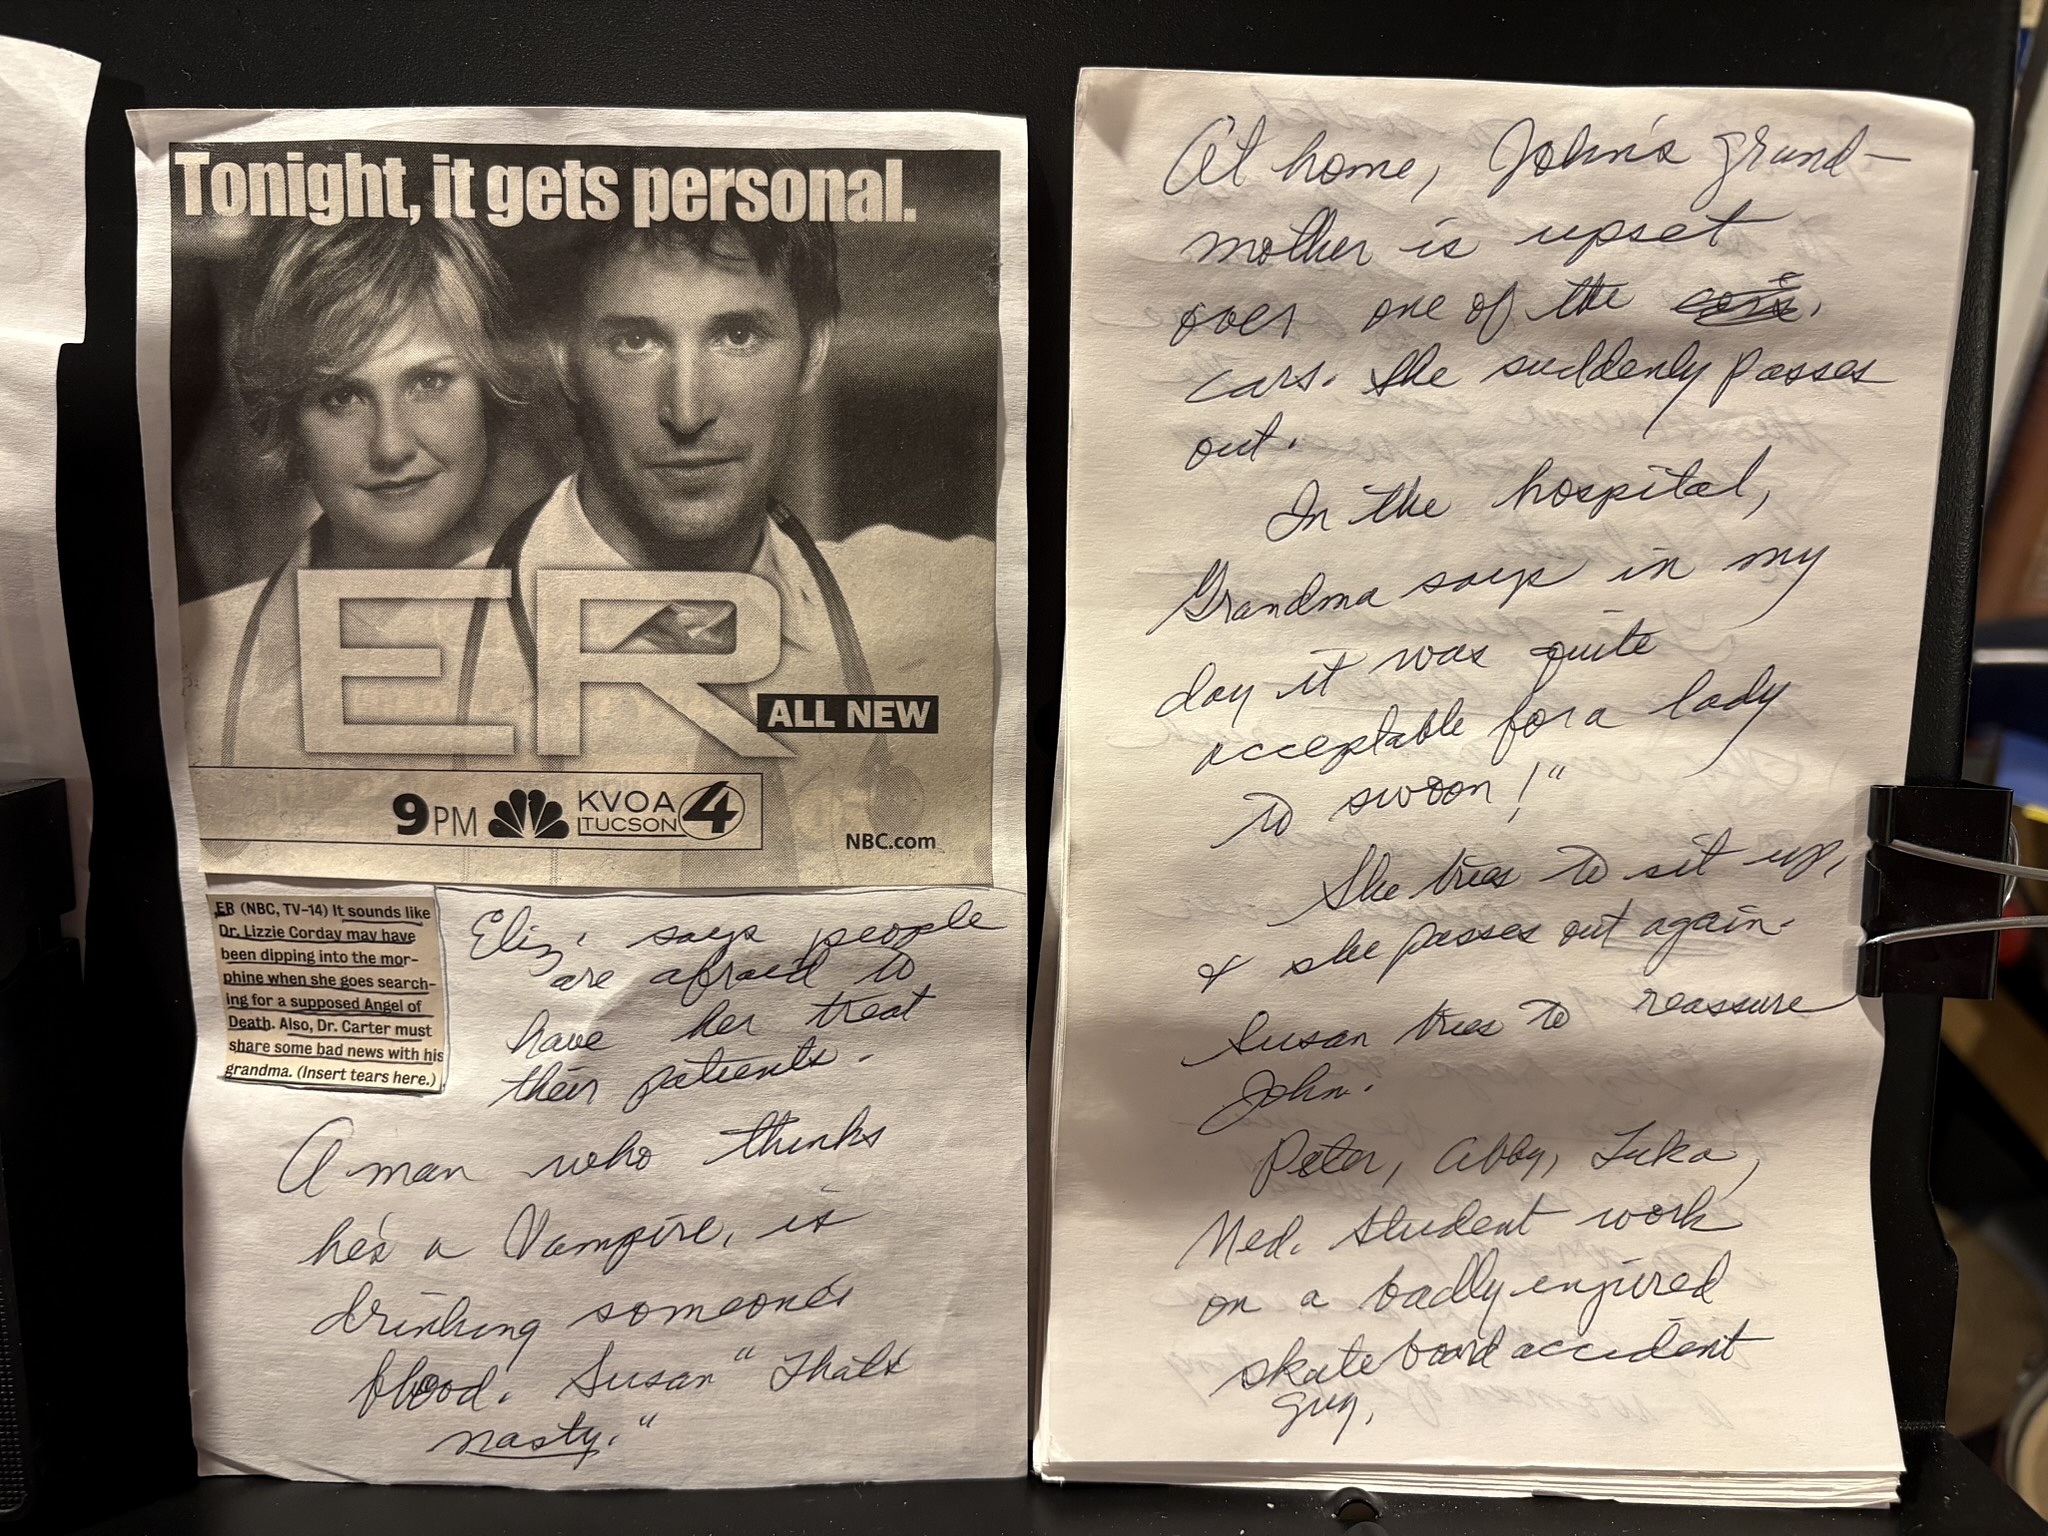 Tonight, it gets personal.
ER
ALL NEW
9PM KVOA 4
TUCSON
NBC.com
ER (NBC, TV-14) It sounds like
Dr. Lizzie Corday may have
been dipping into the mor-
phine when she goes search-
ing for a supposed Angel of
Death. Also, Dr. Carter must
share some bad news with his
grandma. (Insert tears here.)
Eliz. says people
are afraid to
have her treat
their patients.
A man who thinks
he's a Vampire, is
drinking someone's
blood. Susan "That's
nasty."
At home, John's grand-
mother is upset
over one of the
cars. She suddenly passes
out.
In the hospital,
Grandma says in my
day it was quite
acceptable for a lady
to swoon!"
She tries to sit up,
& she passes out again.
Susan tries to reassure
John.
Peter, Abby, Luka,
Med. Student work
on a badly enjured
skate board accident
guy.